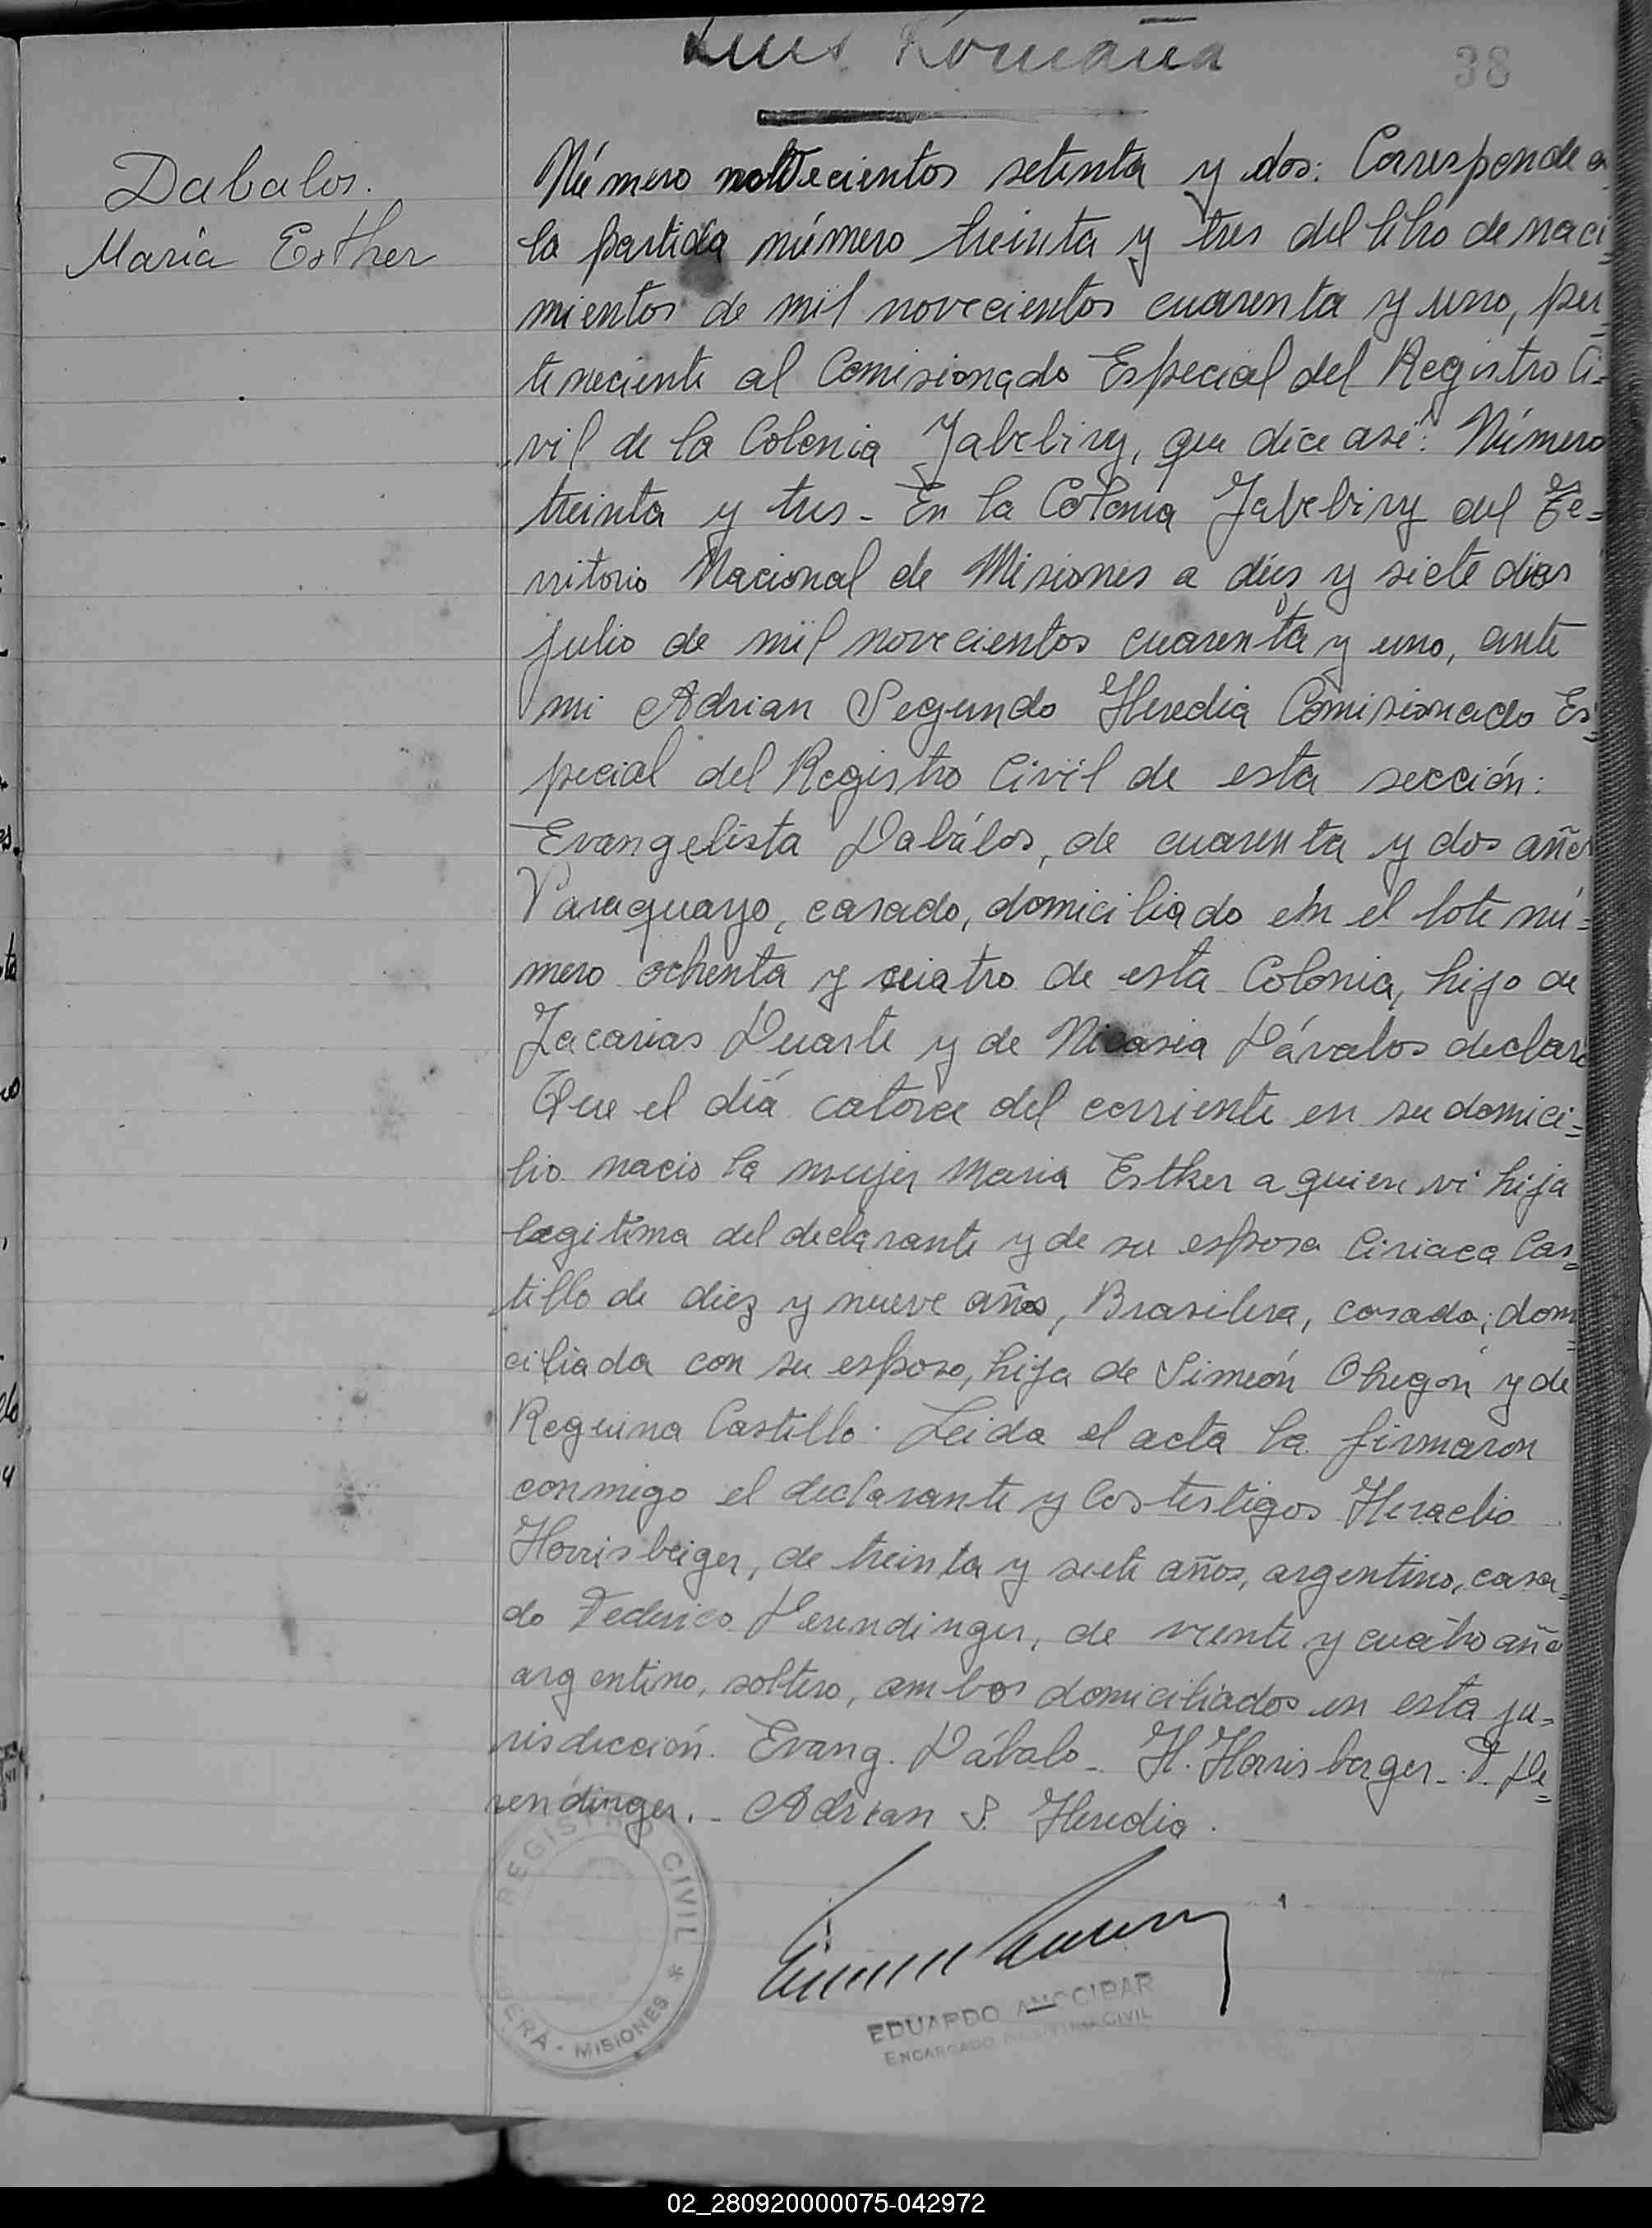 Luis Romaña
38
Dabalos.
María Esther
Número novecientos setenta y dos: Corresponde a
la partida número treinta y tres del libro de naci=
mientos de mil novecientos cuarenta y uno, per=
teneciente al Comisionado Especial del Registro Ci=
vil de la Colonia Yabebiry, que dice así: Número
treinta y tres - En la Colonia Yabebiry del Te=
rritorio Nacional de Misiones a diez y siete dias
julio de mil novecientos cuarenta y uno, ante
mi Adrian Segundo Heredia Comisionado Es=
pecial del Registro Civil de esta sección:
Evangelista Dabálos, de cuarenta y dos años
Paraguayo, casado, domiciliado en el lote nú=
mero ochenta y cuatro de esta Colonia, hijo de
Zacarias Duarte y de Nicasia Dávalos declaro
Que el día catorce del corriente en su domici=
lio nacio la mujer Maria Esther a quien vi hija
legitima del declarante y de su esposa Ciriaca Cas=
tillo de diez y nueve años, Brasilera, casada, domi=
ciliada con su esposo, hija de Simeón Obregón y de
Reguina Castillo. Leida el acta la firmaron
conmigo el declarante y los testigos Heraclio
Horrisbeiger, de treinta y siete años, argentino, casa=
do Federico Derendinger, de viente y cuatro año
argentino, soltero, ambos domiciliados en esta ju=
risdicción. Evang. Dábalo - H. Horrisberger - F. De=
rendinger. - Adrian S. Heredia.
REGISTRO CIVIL *
VERÁ - MISIONES
EDUARDO ANCCIBAR
ENCARGADO REGISTRO CIVIL
02_280920000075-042972